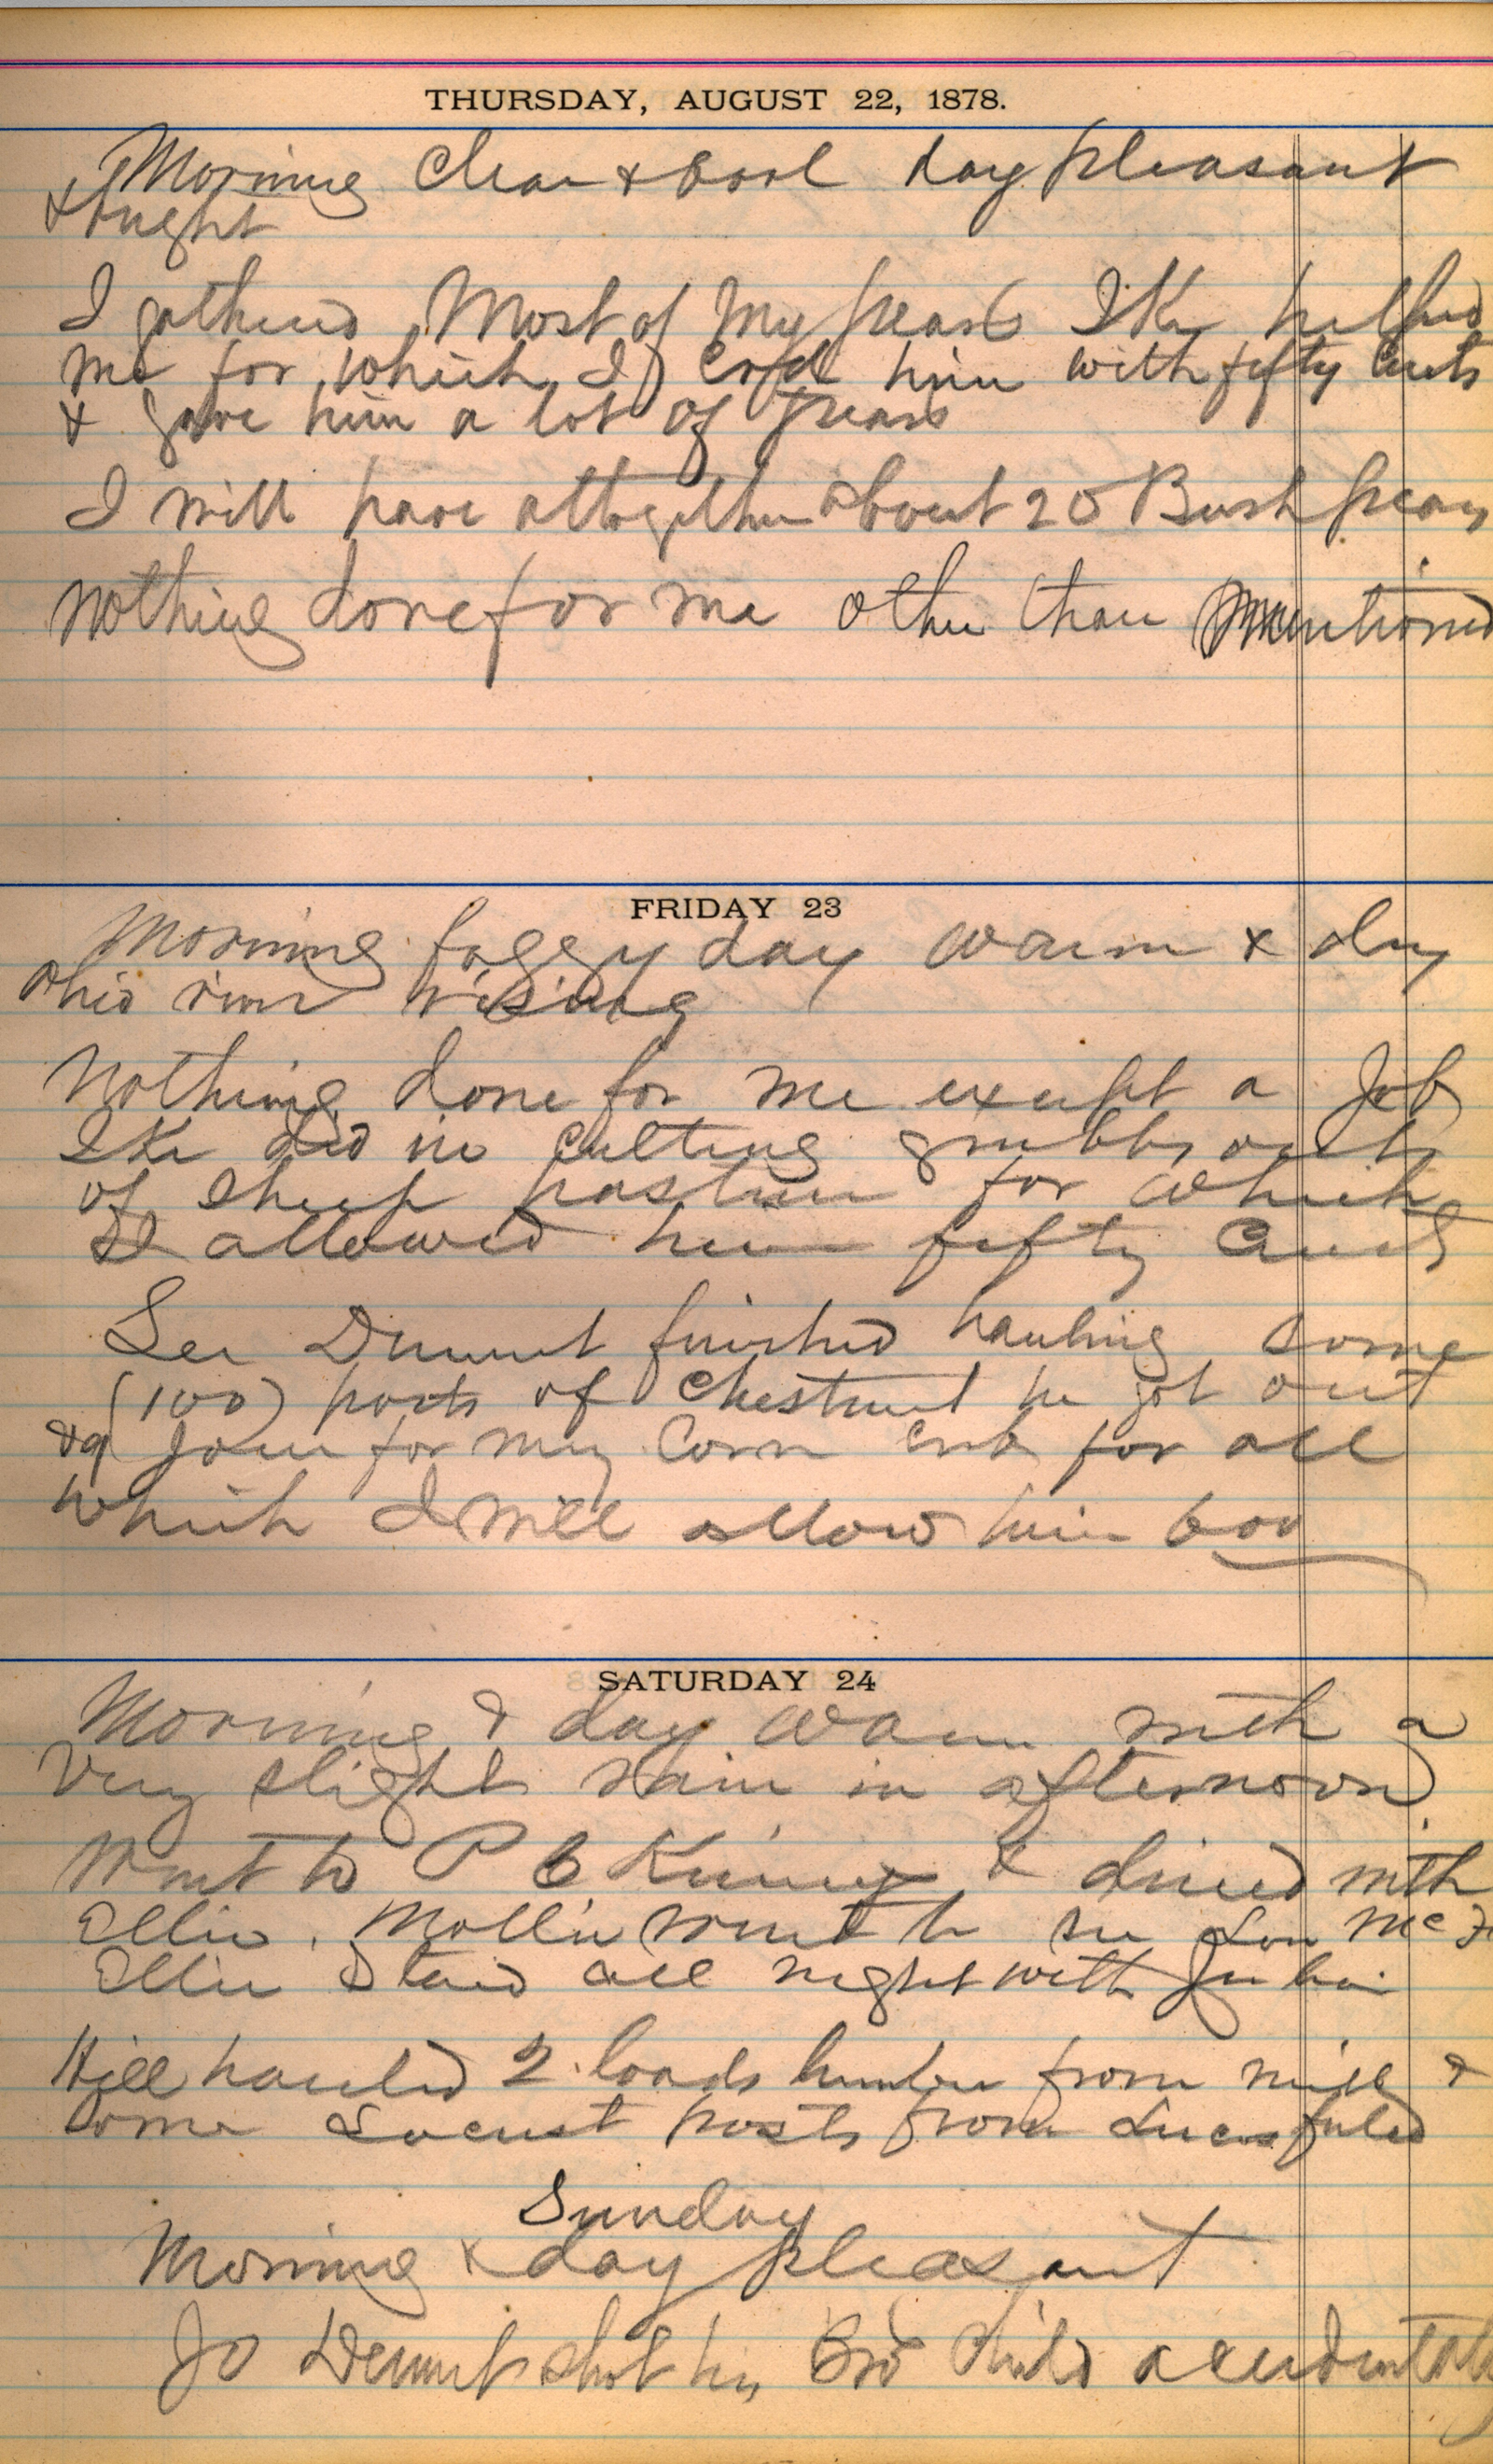 THURSDAY, AUGUST 22, 1878.
Morning Clear & Cool day pleasant
& bright
I gathered Most of My pears Ike helped
me for which I Crd him with fifty cents
& gave him a lot of pears
I will have altogether about 20 Bush pears
Nothing done for me other than Mentioned
FRIDAY 23
Morning foggy day warm & dry
Ohio river rising
Nothing done for me except a Job
Ike did in cutting grubbs out
of sheep pasture for which
I allowed him fifty cents
Lee Dement finished hauling some
(100) posts of Chestnut he got out
for my Corn Crib for all
which I will allow him 600
SATURDAY 24
Morning & day warm with a
Very slight rain in afternoon
Went to P C & dined with
Ellie. Mollie went to see Lou Mc
Ellie Staid all night with Julia
Hill hauled 2 loads lumber from mill &
some Locust posts from Lucas field
Sunday
Morning & day pleasant
Jo Dement shot his Bro Child accidentally